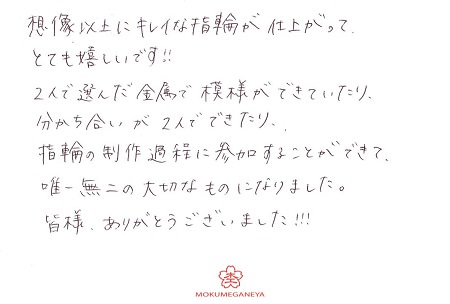 想像以上にキレイな指輪が仕上がって、
とても嬉しいです!!
2人で選んだ金属で模様ができていたり、
分かち合いが2人でできたり、
指輪の制作過程に参加することができて、
唯一無二の大切なものになりました。
皆様、ありがとうございました!!!
MOKUMEGANEYA